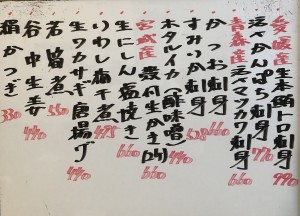 愛媛産 生本鮪トロ刺身 990
活〆かんぱち刺身 770
青森産 活〆マツカワ刺身 660
かつお刺身
すみいか刺身 528
ホタルイカ(酢味噌) 440
宮城産 殻付生かき 660
生にしん塩焼き 660
いわし梅干煮 495
生ワカサギ唐揚げ 440
若筍煮
谷中生姜 440
絹かつぎ 330